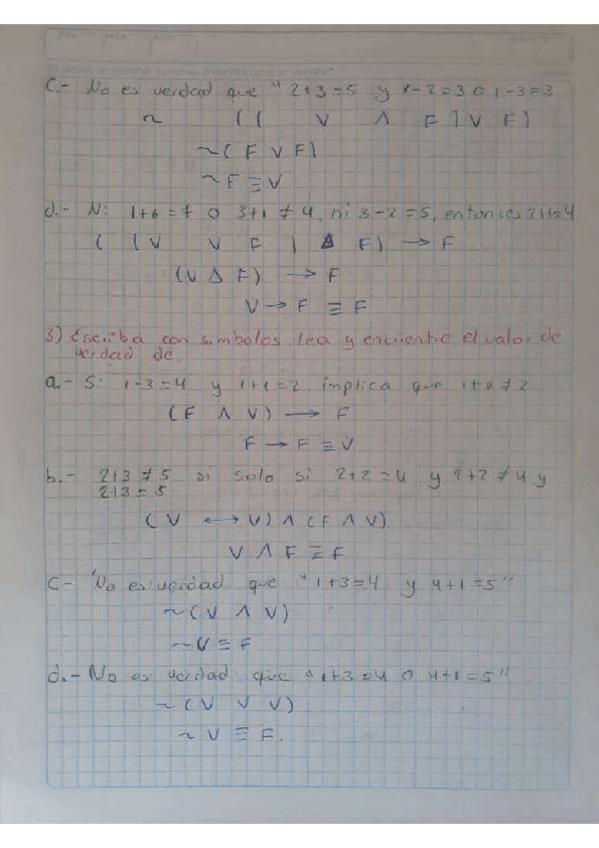 C.- No es verdad que " 2+3=5 y 1-2=3 o 1-3=3
~ ( ( V ∧ F ) V F )
~( F V F )
~F ≡ V
d.- N: 1+6=7 o 3+1 ≠ 4, ni 3-2=5, entonces 2+1=4
( ( V V F ) Δ F ) → F
(V Δ F) → F
V → F ≡ F
3) Escriba con simbolos, lea y encuentre el valor de
verdad de.
a.- S: 1-3=4 y 1+1=2, implica que 1+1≠2
(F ∧ V) → F
F → F ≡ V
b.- 2+3 ≠ 5 si solo si 2+2=4 y 2+2≠4 y
2+3=5
(V ↔ V) ∧ (F ∧ V)
V ∧ F ≡ F
C- "No es verdad que "1+3=4 y 4+1=5"
~(V ∧ V)
~V ≡ F
d.- No es verdad que "1+3=4 o 4+1=5"
~(V V V)
~ V ≡ F.